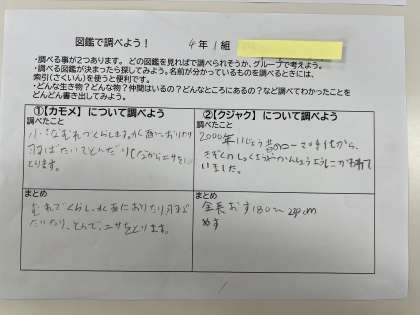 図鑑で調べよう！
4年1組
・調べる事が2つあります。 どの図鑑を見れば調べられそうか、グループで考えよう。
・調べる図鑑が決まったら探してみよう。名前が分かっているものを調べるときには、
索引(さくいん)を使うと便利です。
・どんな生き物？どんな物？仲間はいるの？どんなところにあるの？など調べてわかったことを
どんどん書き出してみよう。
①【カモメ】について調べよう
調べたこと
小さなむれでくらします。
とんだり しながらエサを
とります。
まとめ
むれでくらし、水面におりたり、
たいたり、とんで、エサをとります。
②【クジャク】について調べよう
調べたこと
2000年いじょう昔のローマ時代から、
きぞくの
いました。
まとめ
全長おす180〜230cm
めす